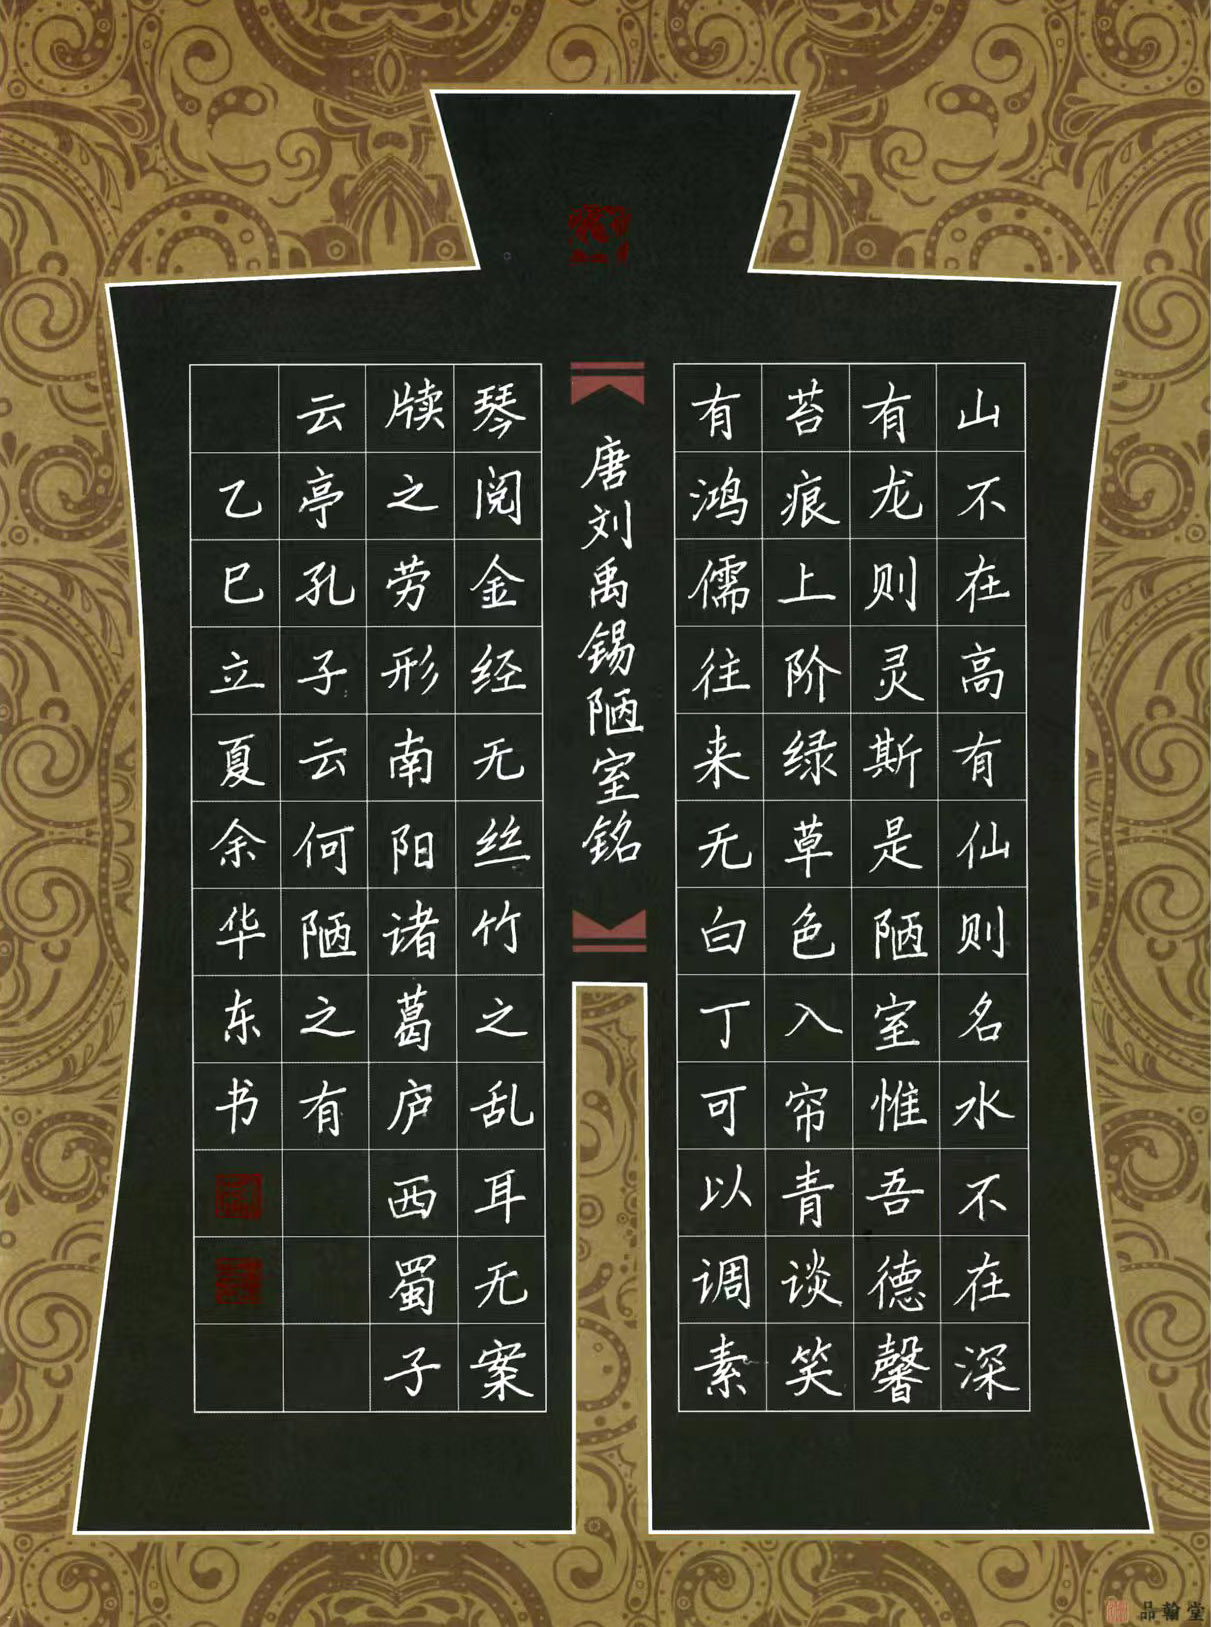 山不在高有仙则名水不在深
有龙则灵斯是陋室惟吾德馨
苔痕上阶绿草色入帘青谈笑
有鸿儒往来无白丁可以调素
唐刘禹锡陋室铭
琴阅金经无丝竹之乱耳无案
牍之劳形南阳诸葛庐西蜀子
云亭孔子云何陋之有
乙巳立夏余华东书
品翰堂